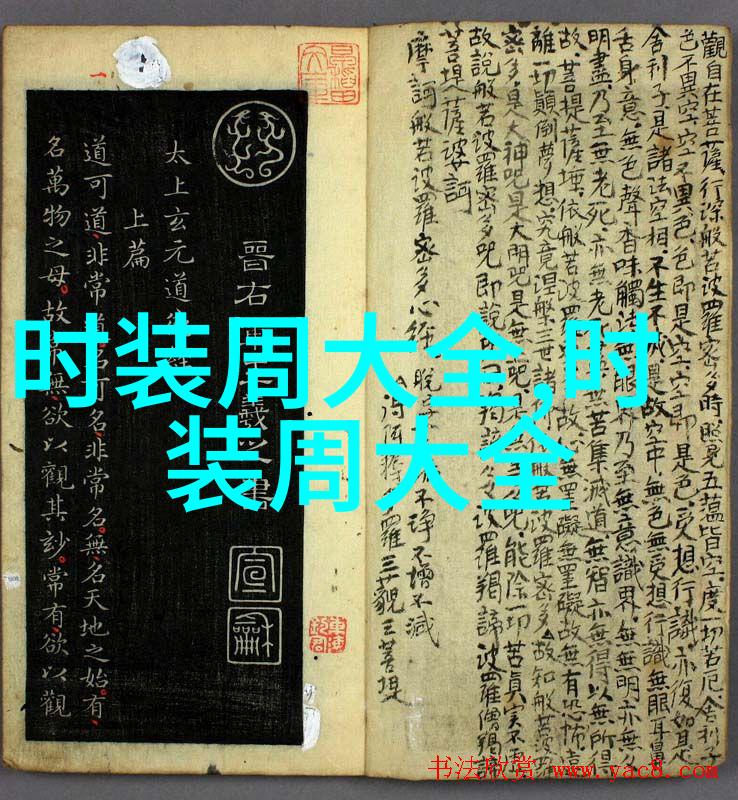 时装周大全,时
装周大全
觀自在菩薩行深般若波羅密多時照見五蘊皆空度一切苦厄舍利子
色不異空空不異色色即是空空即是色受想行識亦復如是
舍利子是諸法空相不生不滅是故空中無色無受想行識無眼耳鼻
舌身意無色聲香味觸法無眼界乃至無意識界無無明亦無
明盡乃至無老死亦無老苦集滅道無智亦無得以無所得
故菩提薩埵依般若波羅故無罣礙無罣礙故無有恐怖遠
離一切顛倒夢想究竟涅槃三世諸般若波羅密多故知般若波羅
密多是大神咒是大明咒是無咒能除一切苦真實不虛
故說般若波羅密多咒即說曰揭諦波羅揭諦波羅僧揭諦
菩提薩婆訶
摩訶般若波羅密多心經
不淨不增不減
羅三藐三菩提
晉右之書
宣
龢
太上玄元道
上篇
道可道非常道名可名非常名無名天地之始有
名萬物之母故無欲以觀其妙常有欲以觀
书法欣赏 www.yac8.com